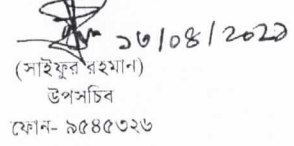 ১৩/০৪/২০২১
(সাইফুর রহমান)
উপসচিব
ফোন- ৯৫৪৫৩২৬